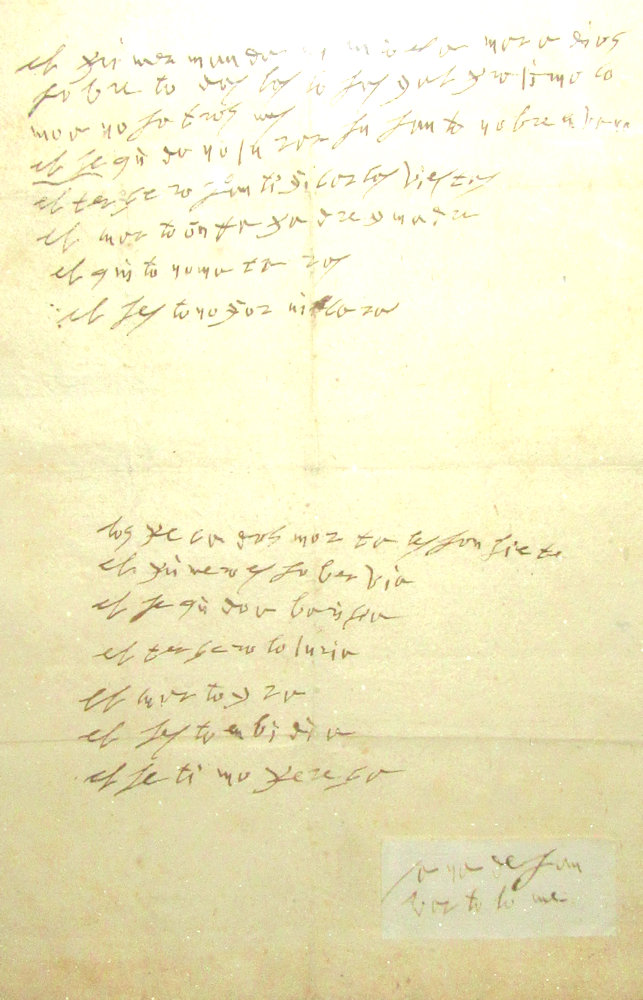 el primer mandam miēto amar a dios
sobre to das las co sas y al proximo co
mo a no so tros mes
el segūdo no ju rar su san to nobre ē bano
el tersero santi fi car las fiestas
el cuarto ōrra padre y madre
el quīto no ma ta ras
el sesto no for ni cara
los pe ca dos mor ta les son siete
el primero es so ber via
el segūdo a barisia
el tersero lo juria
el cuarto yra
el sesto ēbidia
el setimo peresa
ana de san
bar to lo me